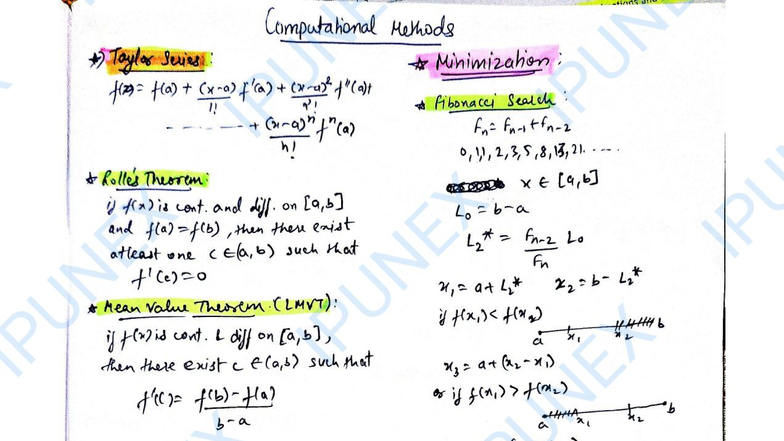 Computational Methods
*) Taylor Series:
f(x) = f(a) + (x-a)/1! f'(a) + (x-a)²/2! f''(a)+
- - - - - - - - + (x-a)ⁿ/n! fⁿ(a)
* Rolle's Theorem:
if f(x) is cont. and diff. on [a,b]
and f(a)=f(b), then there exist
atleast one c ∈ (a,b) such that
f'(c)=0
* Mean Value Theorem (LMVT):
if f(x) is cont. & diff on [a,b],
then there exist c ∈ (a,b) such that
f'(c) = f(b) - f(a)
b-a
* Minimization:
* Fibonacci Search:
Fn = Fn-1 + Fn-2
0,1,1,2,3,5,8,13,21.....
x ∈ [a,b]
L₀ = b-a
L₂* = Fn-2/Fn L₀
x₁ = a + L₂* x₂ = b - L₂*
if f(x₁) < f(x₂)
a x₁ x₂ b
x₃ = a + (x₂ - x₁)
or if f(x₁) > f(x₂)
a x₁ x₂ b
IPUNEX
IPUNEX
IPUNEX
IPUNEX